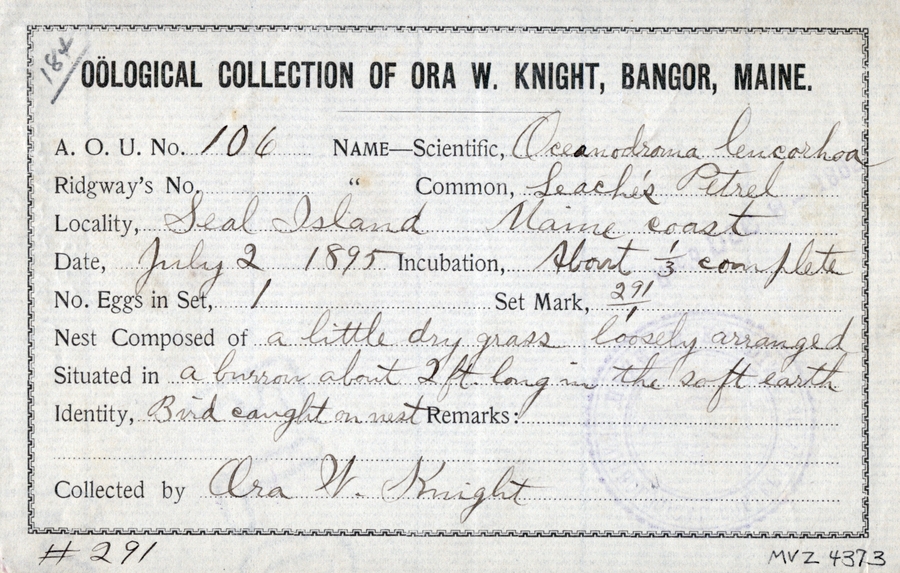 184
OÖLOGICAL COLLECTION OF ORA W. KNIGHT, BANGOR, MAINE.
A. O. U. No. 106 NAME—Scientific, Oceanodroma leucorhoa
Ridgway's No. " Common, Leache's Petrel
Locality, Seal Island Maine coast
Date, July 2 1895 Incubation, About 1/3 complete
No. Eggs in Set, 1 Set Mark, 291/1
Nest Composed of a little dry grass loosely arranged
Situated in a burrow about 2 ft. long in the soft earth
Identity, Bird caught on nest Remarks:
Collected by Ora W. Knight
# 291
MVZ 4373